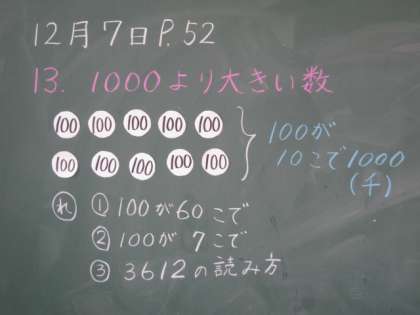 12月7日P.52
13. 1000より大きい数
100 100 100 100 100
100 100 100 100 100
100が
10こで1000
(千)
れ ① 100が60こで
② 100が 7こで
③ 3612の読み方